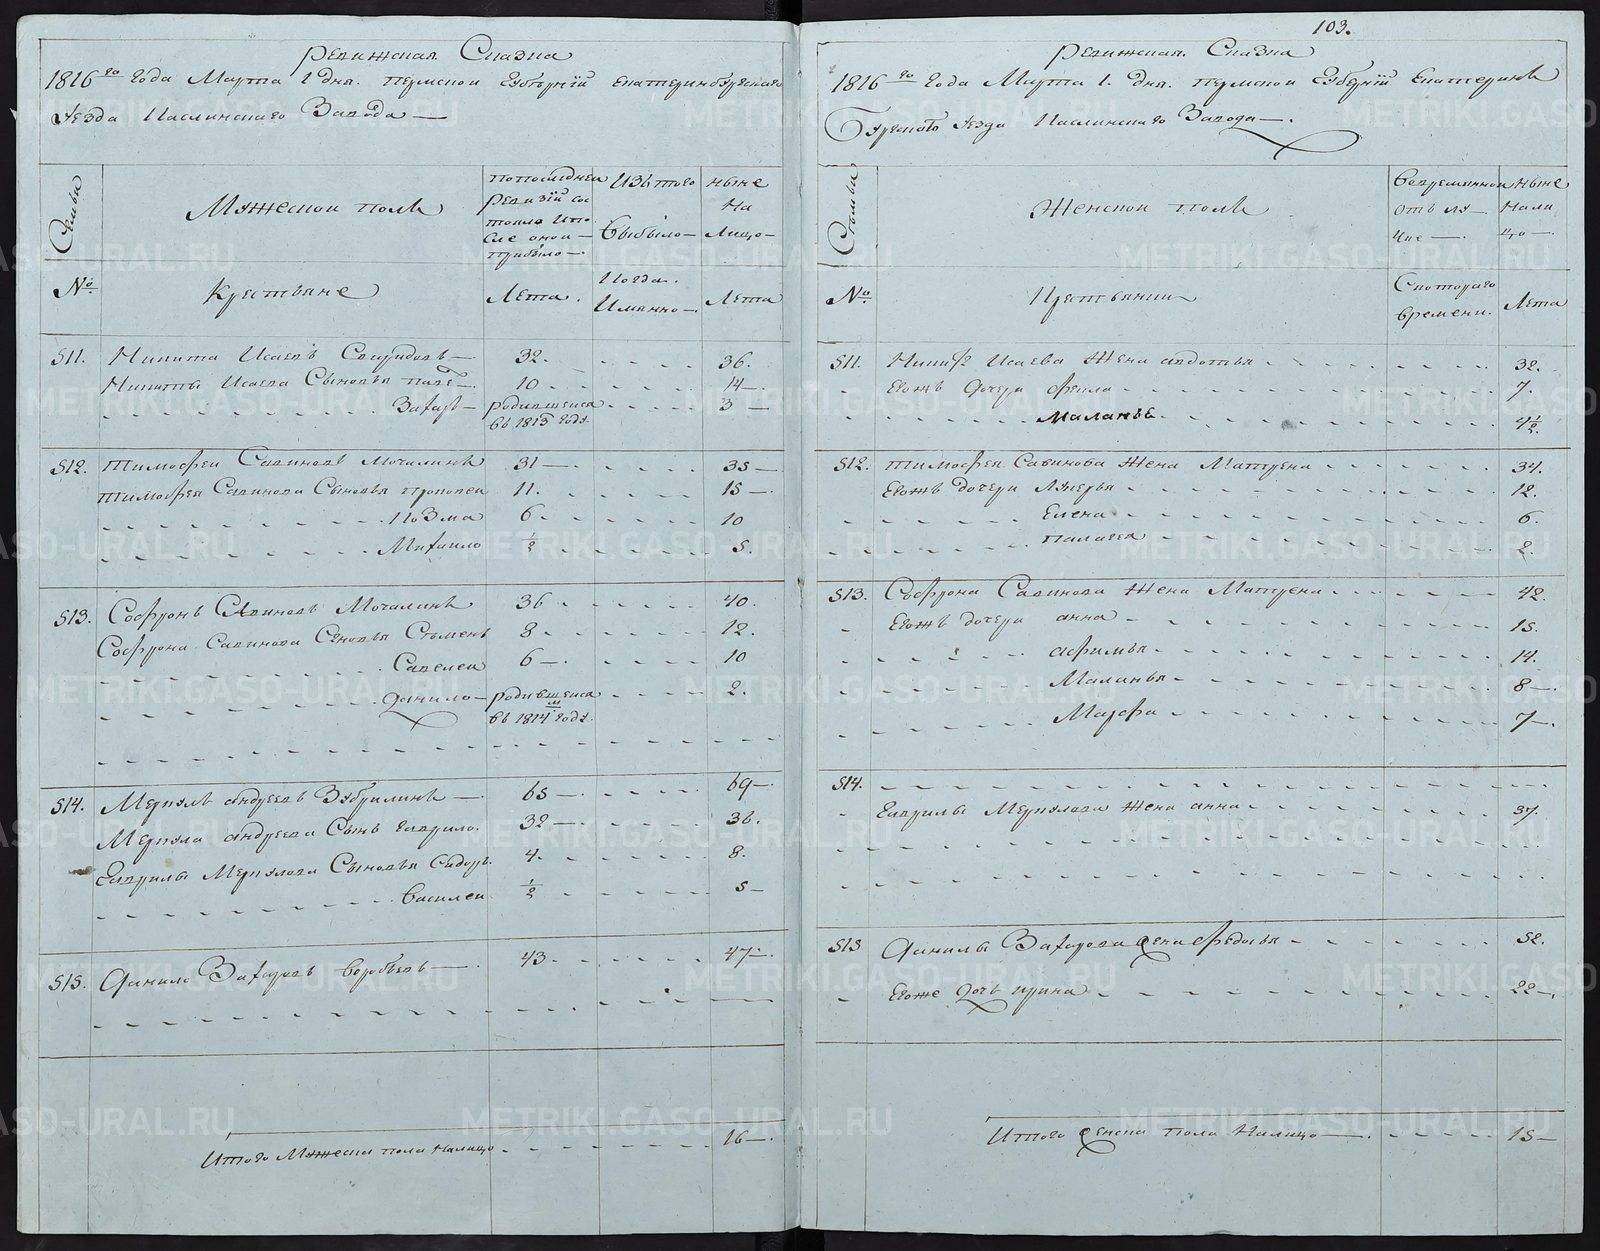 103.
Ревижская Сказка
1816го Года Марта 1 дня. Пермской Губернiи Екатеринбургскаго
Уезда Каслинскаго Завода
Семьи
Мужеской полъ
попоследней ревизiи состояло и после оной прибыло
Изътого Выбыло
ныне На Лицо
№
Крестьяне
Лета.
Когда. Имянно
Лета
511. Никита Исаевъ Свиридовъ 32. 36.
Никиты Исаева Сыновья 10 14
Захаръ родившейся въ 1813 годъ 3
512. Тимофей Савиновъ Мочалинъ 31 35
Тимофея Савинова Сыновья Прокопей 11. 15
Козма 6 10
Михаило 1/2 5.
513. Софронъ Савиновъ Мочалинъ 36 40.
Софрона Савинова Сыновья Семенъ 8 12.
Савелей 6 10
Данило родившейся въ 1814м годъ. 2.
514. Меркулъ Андреевъ Зубрилинъ 65 69
Меркула Андреева Сынъ Гаврило. 32 36.
Гаврилы Меркулова Сыновья Сидоръ 4. 8.
Василей 1/2 5
515. Данило Захаровъ Воробьевъ 43. 47
Итого Мужеска пола Налицо 16
Ревижская Сказка
1816го Года Марта 1. дня. Пермской Губернiи Екатеринъ
Бургскаго Уезда Каслинскаго Завода
Семьи
Женской полъ
Вовременной отълучке
Ныне Налицо
№
Крестьянки
Скоторого времени.
Лета
511. Никиты Исаева Жена Авдотья 32.
Егожъ Дочери Фекла 7.
Маланья 4 1/2.
512. Тимофея Савинова Жена Матрена 34.
Егожъ дочери Лукерья 12.
Елена 6.
Палагея 2.
513. Софрона Савинова Жена Матрена 42.
Егожъ дочери Анна 15.
Афимья 14.
Маланья 8
Марфа 7
514.
Гаврилы Меркулова Жена Анна 37.
515 Данилы Захарова Жена Федосья 52.
Егоже Дочь Ирина 22
Итого Женска пола Налицо 15
METRIKI.GASO-URAL.RU